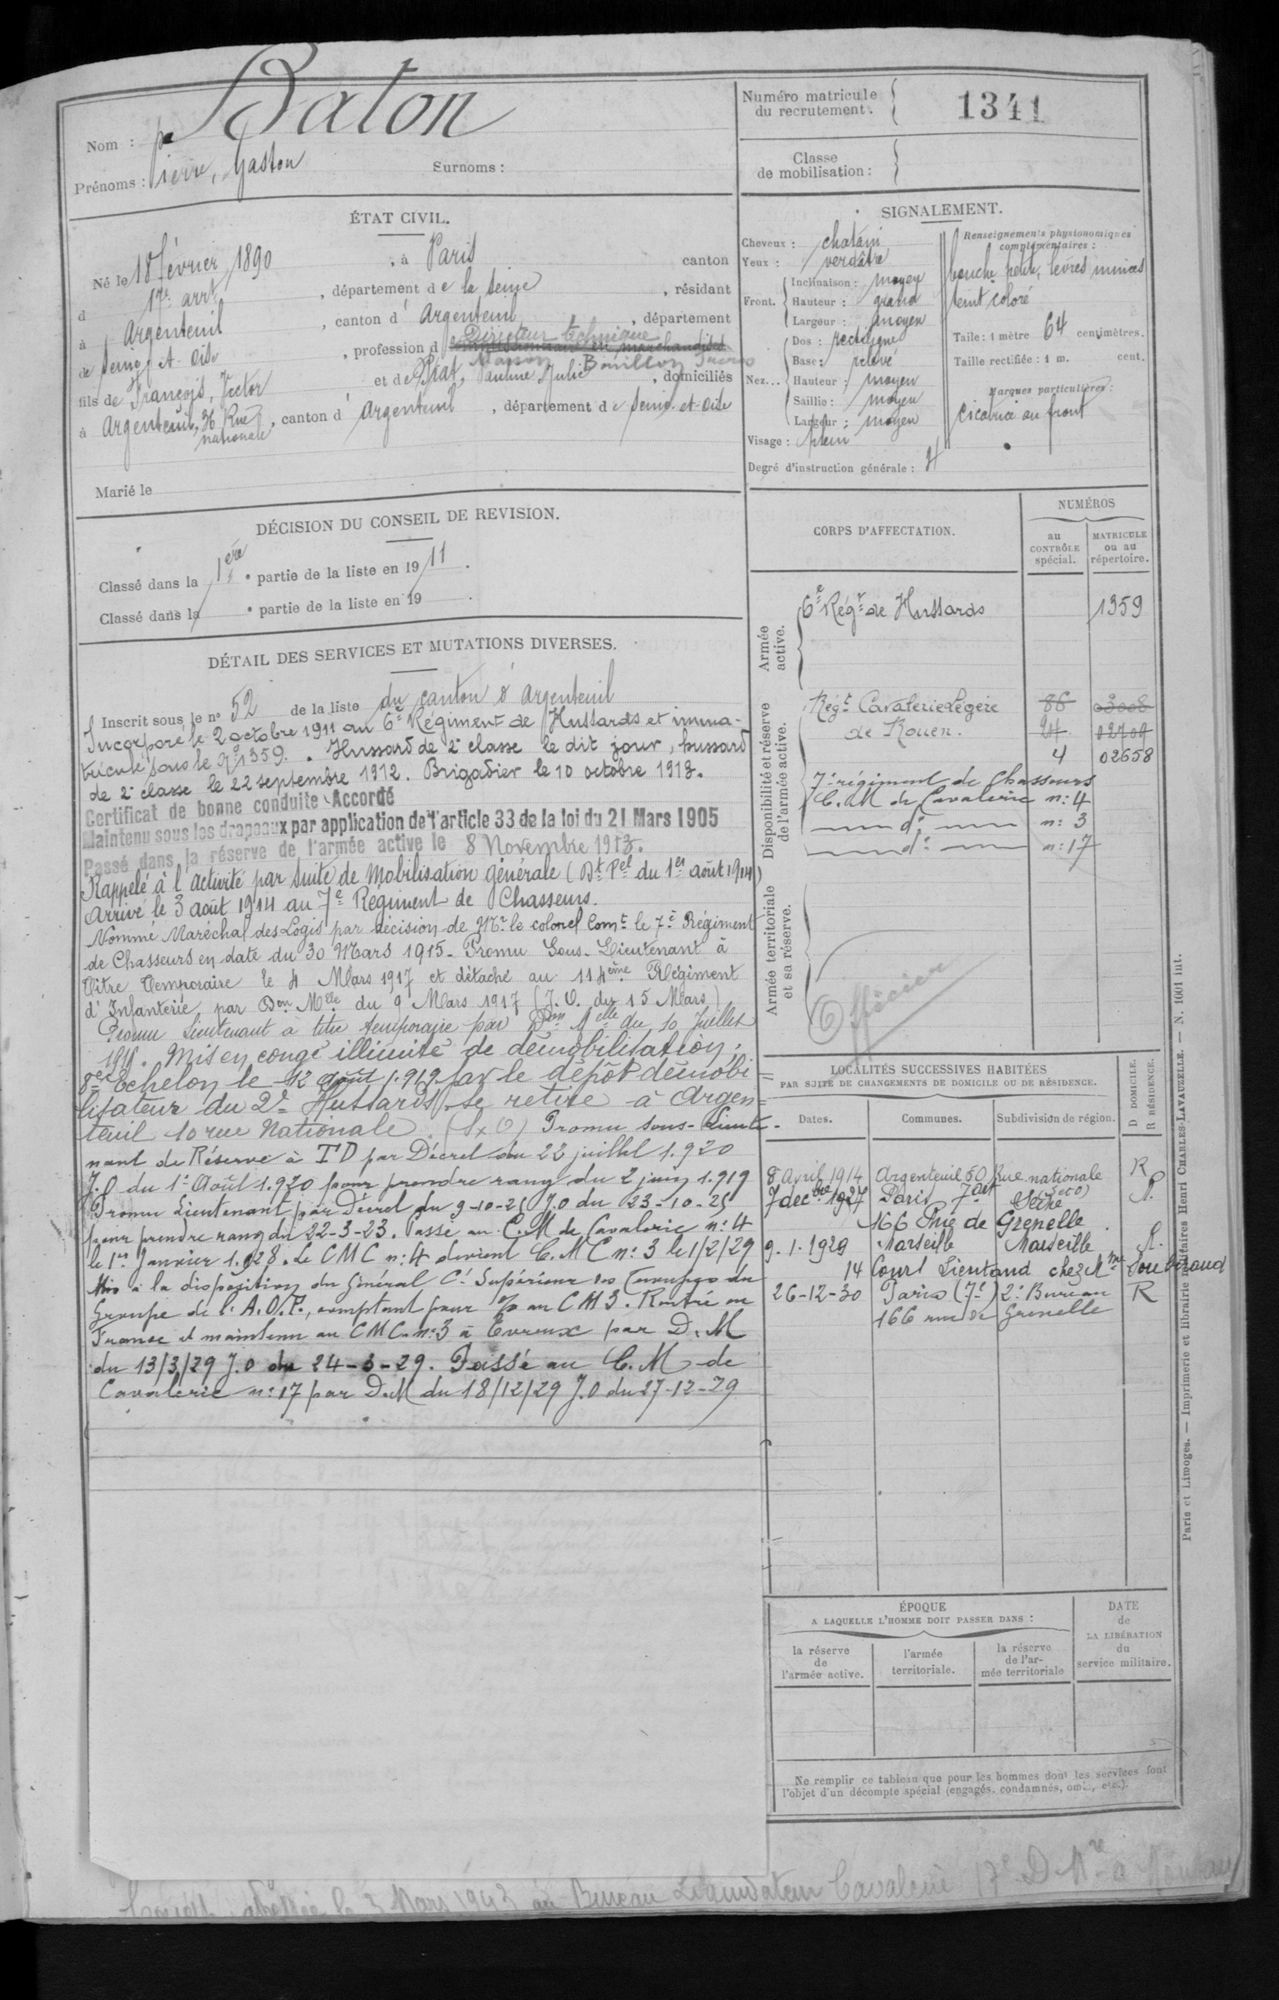 Nom : Baton
Prénoms : Pierre, Gaston Surnoms :
Numéro matricule du recrutement : 1341
Classe de mobilisation :
ÉTAT CIVIL.
Né le 18 février 1890, à Paris canton
d 17e arrt, département de la Seine, résidant
à Argenteuil, canton d'Argenteuil, département
de Seine et Oise, profession d Directeur technique
Maison Bouillon Frères
fils de François, Victor et de Prat, Pauline Julie, domiciliés
à Argenteuil, 36 Rue nationale, canton d'Argenteuil, département de Seine-et-Oise
Marié le
SIGNALEMENT.
Cheveux : chatain
Yeux : verdâtre
Front. Inclinaison : moyen
Hauteur : grand
Largeur : moyen
Nez... Dos : rectiligne
Base : relevé
Hauteur : moyen
Saillie : moyen
Largeur : moyen
Visage : plein
Renseignements physionomiques complémentaires :
bouche petite, lèvres minces
teint coloré
Taille : 1 mètre 64 centimètres.
Taille rectifiée : 1 m. cent.
Marques particulières :
Cicatrice au front
Degré d'instruction générale :
DÉCISION DU CONSEIL DE REVISION.
Classé dans la 1ère partie de la liste en 1911.
Classé dans la e partie de la liste en 19 .
DÉTAIL DES SERVICES ET MUTATIONS DIVERSES.
Inscrit sous le n° 52 de la liste du canton d'Argenteuil
Incorporé le 2 octobre 1911 au 6e Régiment de Hussards et imma-
triculé sous le No 1359. Hussard de 2e classe le dit jour, hussard
de 2e classe le 22 septembre 1912. Brigadier le 10 octobre 1913.
Certificat de bonne conduite Accordé
Maintenu sous les drapeaux par application de l'article 33 de la loi du 21 Mars 1905
Passé dans la réserve de l'armée active le 8 Novembre 1913.
Rappelé à l'activité par suite de Mobilisation générale (Dt Pel du 1er août 1914)
Arrivé le 3 août 1914 au 7e Régiment de Chasseurs.
Nommé Maréchal des Logis par décision de Mr le colonel Comt le 7e Régiment
de Chasseurs en date du 30 Mars 1915. Promu Sous-Lieutenant à
titre temporaire le 4 Mars 1917 et détaché au 114ème Régiment
d'Infanterie par Don Mlle du 9 Mars 1917 (J.O. du 15 Mars)
Promu Lieutenant à titre temporaire par Don Mlle du 10 Juillet
1918. Mis en congé illimité de démobilisation,
8e Echelon le 12 août 1919 par le dépôt démobi
lisateur du 2e Hussards, se retire à Argen=
teuil 10 rue Nationale. Promu Sous-Lieute-
nant de Réserve à T D par Décret du 22 juillet 1.920
J.O du 1er Août 1.920 pour prendre rang du 2 juin 1.919
Promu Lieutenant par Décret du 9-10-25 J.O du 23-10-25
pour prendre rang du 22-3-23. Passé au C.M de Cavalerie n° 4
le 1er Janvier 1.928. Le CMC n° 4 devient C.M.C n° 3 le 1/2/29
Mis à la disposition du Général Ct Supérieur des Troupes du
Groupe de l'A.O.F., comptant pour % au CM 3. Rentré en
France et maintenu au CMC n° 3 à Evreux par D.M
du 13/3/29 J.O du 24-3-29. Passé au C.M de
Cavalerie n° 17 par D.M du 18/12/29 J.O du 27-12-29
CORPS D'AFFECTATION.
NUMÉROS
au CONTRÔLE spécial.
MATRICULE ou au répertoire.
Armée active.
6e Régt de Hussards 1359
Disponibilité et réserve de l'armée active.
Régt Cavalerie Légère 86 03008
de Rouen. 24 02409
4 02658
7e régiment de Chasseurs
C.M de Cavalerie n° 4
d° n° 3
d° n° 17
Armée territoriale et sa réserve.
Officier
LOCALITÉS SUCCESSIVES HABITÉES
PAR SUITE DE CHANGEMENTS DE DOMICILE OU DE RÉSIDENCE.
Dates. Communes. Subdivision de région. D DOMICILE. R RÉSIDENCE.
8 Avril 1914 Argenteuil 50 Rue nationale R
7 decbre 1927 Paris 7e art Seine R.
166 Rue de Grenelle
9-1-1929 Marseille Marseille R.
14 Court Lieutaud chez Mme Soubiroud
26-12-30 Paris (7e) 2e Bureau R
166 rue de Grenelle
ÉPOQUE
A LAQUELLE L'HOMME DOIT PASSER DANS :
la réserve de l'armée active.
l'armée territoriale.
la réserve de l'armée territoriale
DATE de LA LIBÉRATION du service militaire.
Ne remplir ce tableau que pour les hommes dont les services font
l'objet d'un décompte spécial (engagés, condamnés, omis, etc.).
Paris et Limoges. — Imprimerie et librairie militaires Henri CHARLES-LAVAUZELLE. — N. 1001 int.
le 3 Mars 1943 au Bureau Liquidateur Cavalerie 17e D Mre à